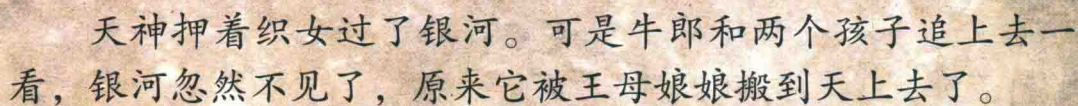 天神押着织女过了银河。可是牛郎和两个孩子追上去一
看，银河忽然不见了，原来它被王母娘娘搬到天上去了。